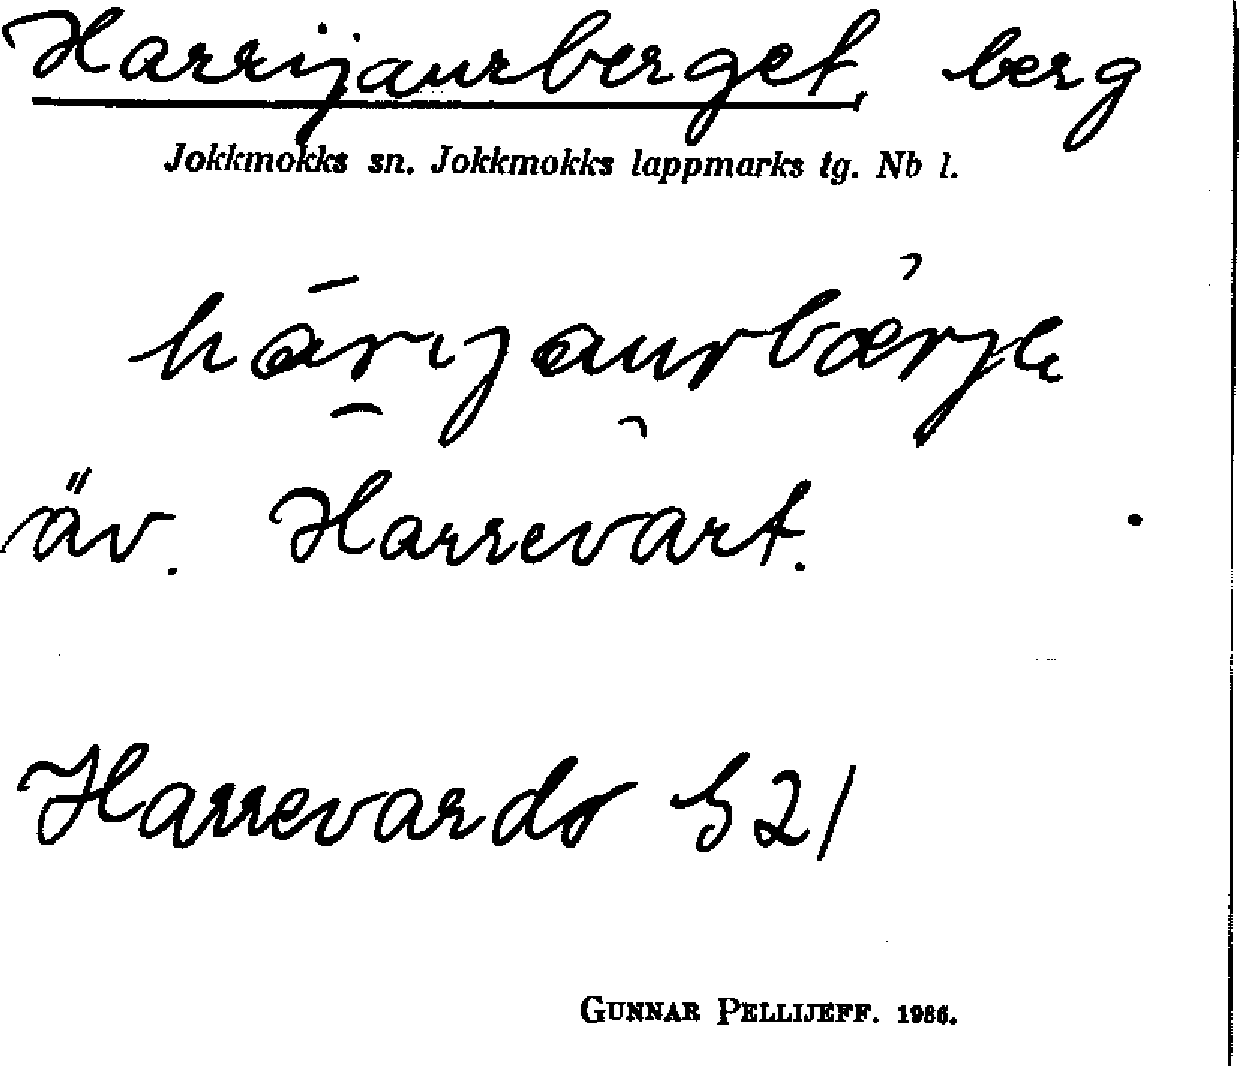 Harrijaurberget, berg
Jokkmokks sn. Jokkmokks lappmarks tg. Nb l.
harijaurbærje
äv. Harrevart.
Harrevardo 521
GUNNAR PELLIJEFF. 1986.